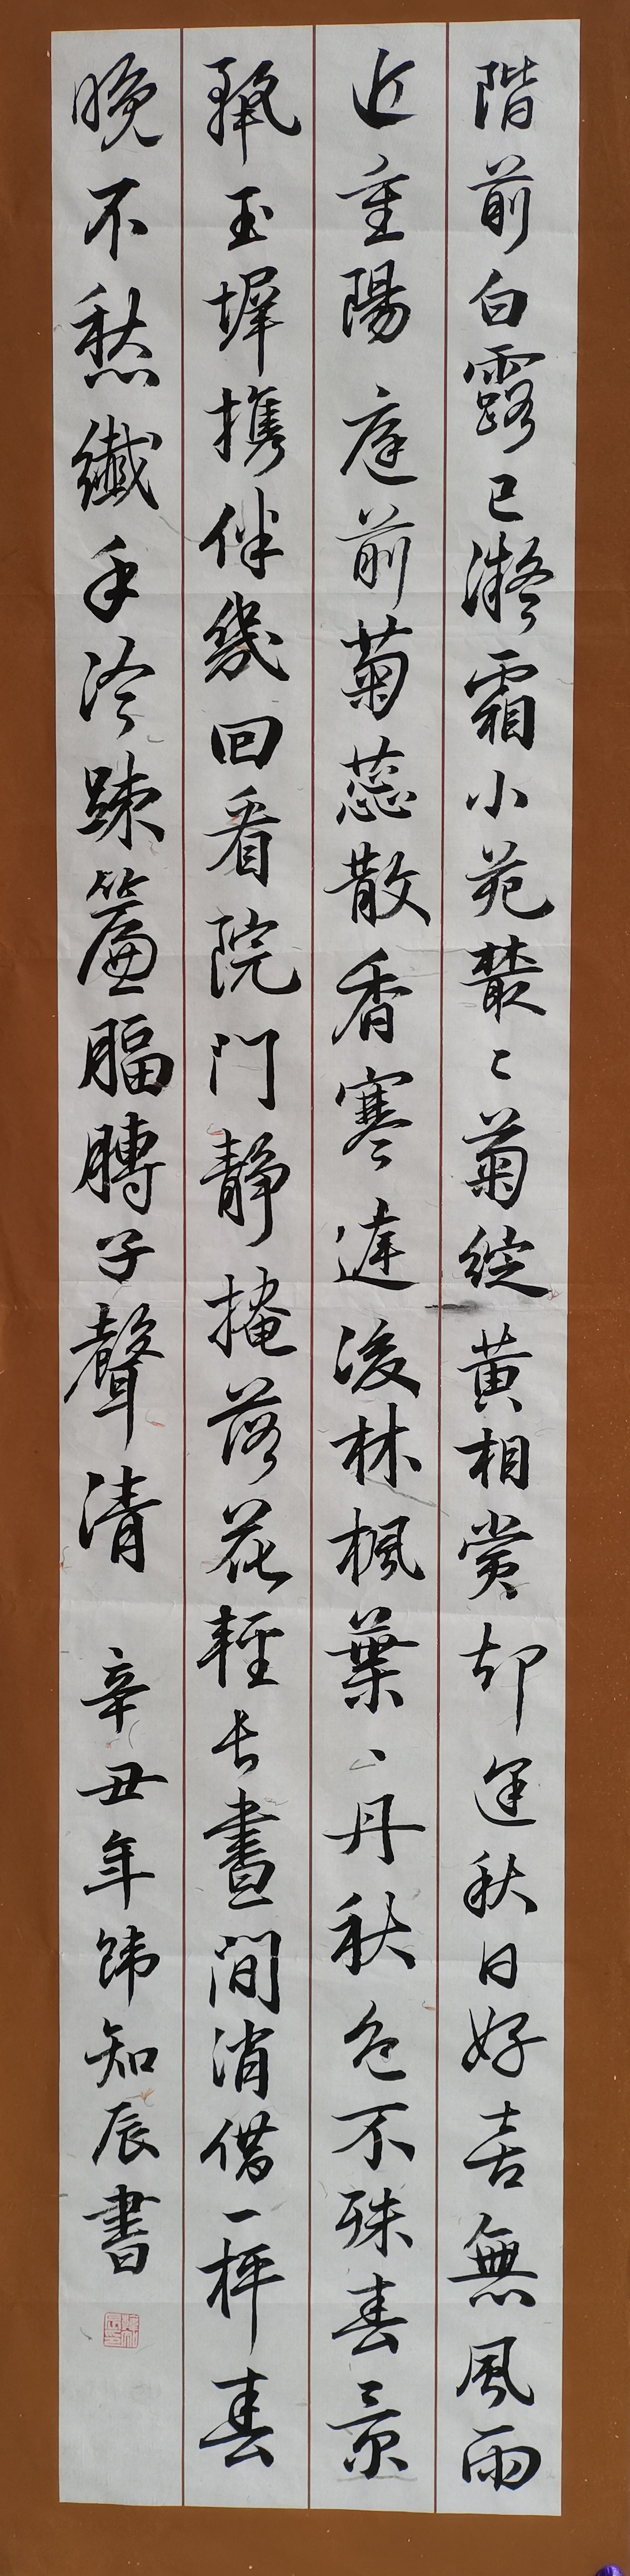 階前白露已凝霜小苑叢〻菊綻黄相賞却逢秋日好喜無風雨
近重陽庭前菊蕊散香寒遠浚林楓葉丶丹秋色不殊春景
飄玉墀攜伴幾回看院門靜掩落花輕長晝間消借一枰春
晚不愁纖手冷踈簾腷膊子聲清
辛丑年韩知辰書